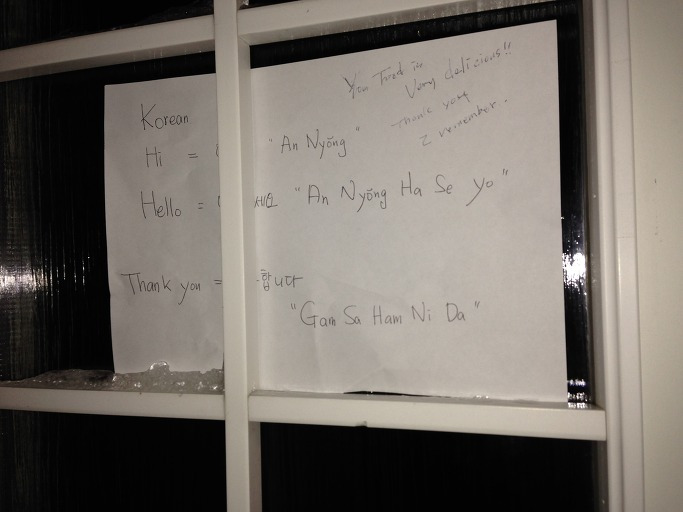 Your Food is
Very delicious!!
Thank you
I remember.
Korean
Hi = "An Nyŏng"
Hello = 세요 "An Nyŏng Ha Se yo"
Thank you = 합니다
"Gam Sa Ham Ni Da"